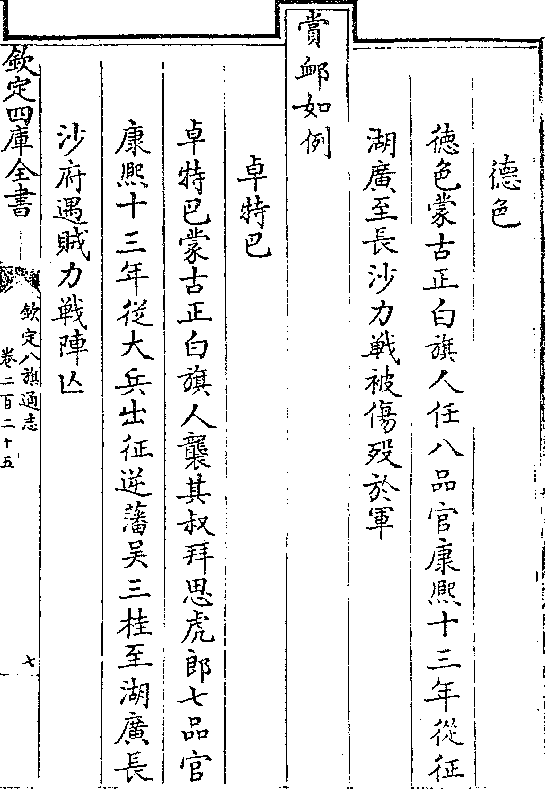 德色
德色蒙古正白旗人任八品官康熙十三年從征
湖廣至長沙力戰被傷歿於軍
賞䘏如例
卓特巴
卓特巴蒙古正白旗人襲其叔拜思虎郎七品官
康熙十三年從大兵出征逆藩吳三桂至湖廣長
沙府遇賊力戰陣亾
欽定四庫全書
欽定八旗通志
卷二百二十五
七